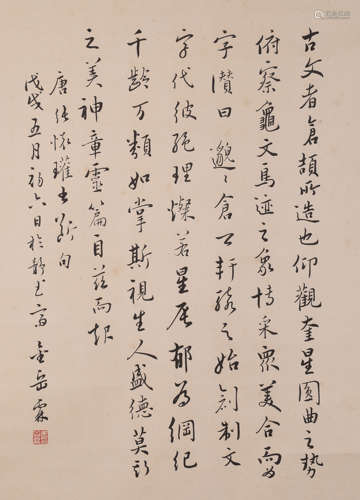 古文者倉頡所造也仰觀奎星圜曲之勢
俯察龜文鳥迹之象博采眾美合而為
字讚曰邈邈倉公軒轅之始創制文
字代彼繩理燦若星辰郁為綱紀
千齡万類如掌斯視生人盛德莫斯
之美神章靈篇自茲而起
唐張懷瓘書斷句
戊戌五月初六日於靜書齋金岳霖